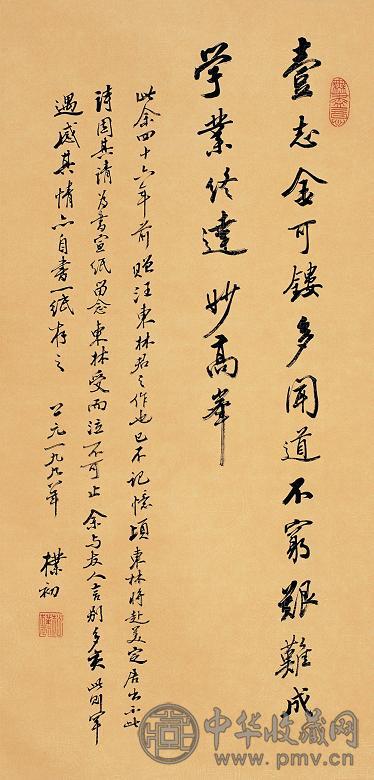 壹志金可镂多闻道不穷艱難成
学業终達妙高峯
此余四十六年前赠汪東林君之作也已不记憶頃東林将赴美定居出示此
诗固其请为書宣纸留念東林受而泣不可止余与友人言别多矣此则罕
遇感其情亦自書一纸存之 公元一九九八年 樸初
中华收藏网
www.pmv.cn